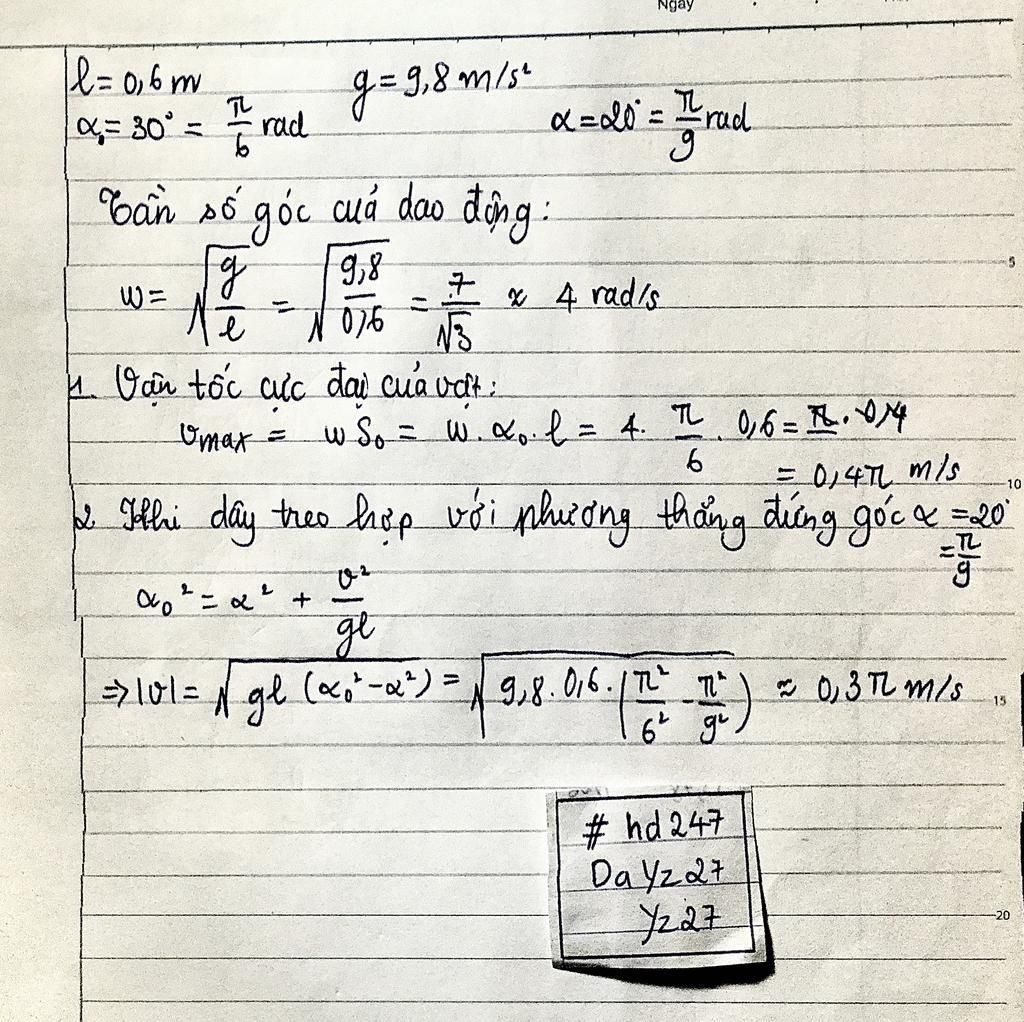 Ngày
l = 0,6 m g = 9,8 m/s²
α₀ = 30° = π/6 rad α = 20° = π/9 rad
Tần số góc của dao động:
w = √(g/l) = √(9,8/0,6) = 7/√3 ≈ 4 rad/s
5
1. Vận tốc cực đại của vật:
vmax = wS₀ = w.α₀.l = 4. π/6 . 0,6 = π.0,4
= 0,4π m/s
10
2. Khi dây treo hợp với phương thẳng đứng góc α = 20°
= π/9
α₀² = α² + v²/gl
=> |v| = √(gl (α₀² - α²)) = √(9,8.0,6.(π²/6² - π²/9²)) ≈ 0,3π m/s
15
# hd247
DaYz27
Yz27
20